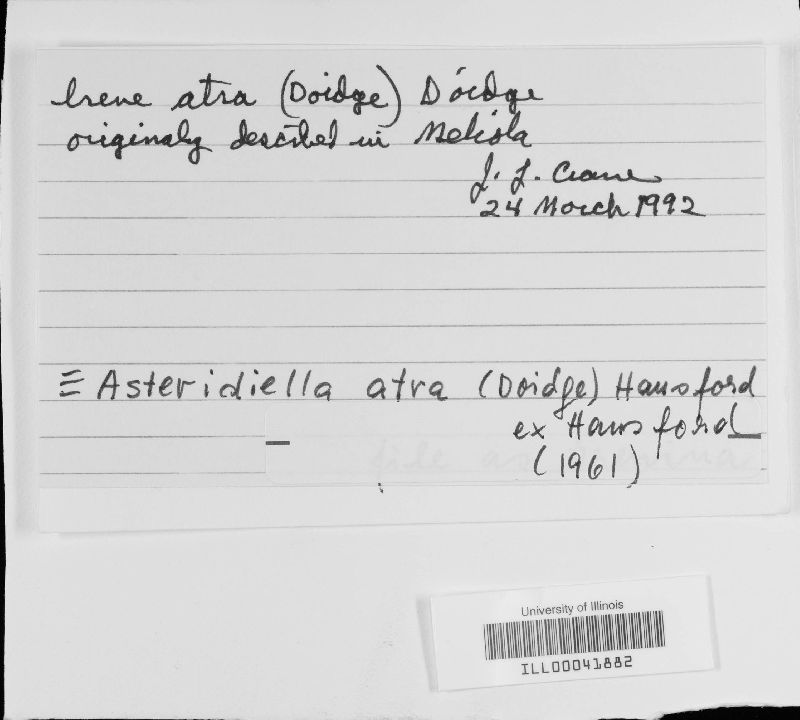 Irene atra (Doidge) Doidge
originaly described in Meliola
J. L. Crane
24 March 1992
≡ Asteridiella atra (Doidge) Hansford
ex Hansford
(1961)
University of Illinois
ILL00041882